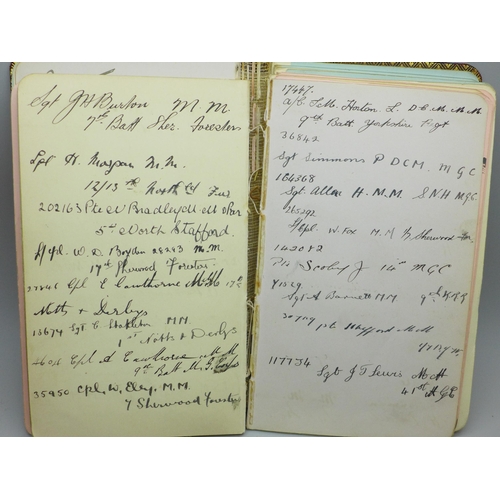 Sgt J H Burton M. M.
7th Batt Sher. Foresters
Cpl H. Morgan M.M.
12/13th North'd Fus
202163 Pte W Bradley M.M
5th North Stafford.
L/Cpl. W. D. Boyden 28243 M.M.
17th Sherwood Forester
Cpl E Cawthorne M.M 17th
Notts & Derbys
Sgt C Stapleton MM
1st Notts & Derbys
Cpl A M M
9th Batt M. G. Corps
35950 Cpl. W. Eley. M.M.
Sherwood Foresters
17447.
a/C S.M. Horton L D C M. M.M.
9th Batt Yorkshire Regt
36842
Sgt Simmons P DCM. M G C
164368
Sgt. Allen H. M.M. M.G.C.
265292
L/Cpl. W. Fox M.M Sherwood For.
142082
Pte Scobey J M G C
Sgt A Barnett MM
Pte Hayford M M
117734
Sgt J T Lewis M M
41st M G C